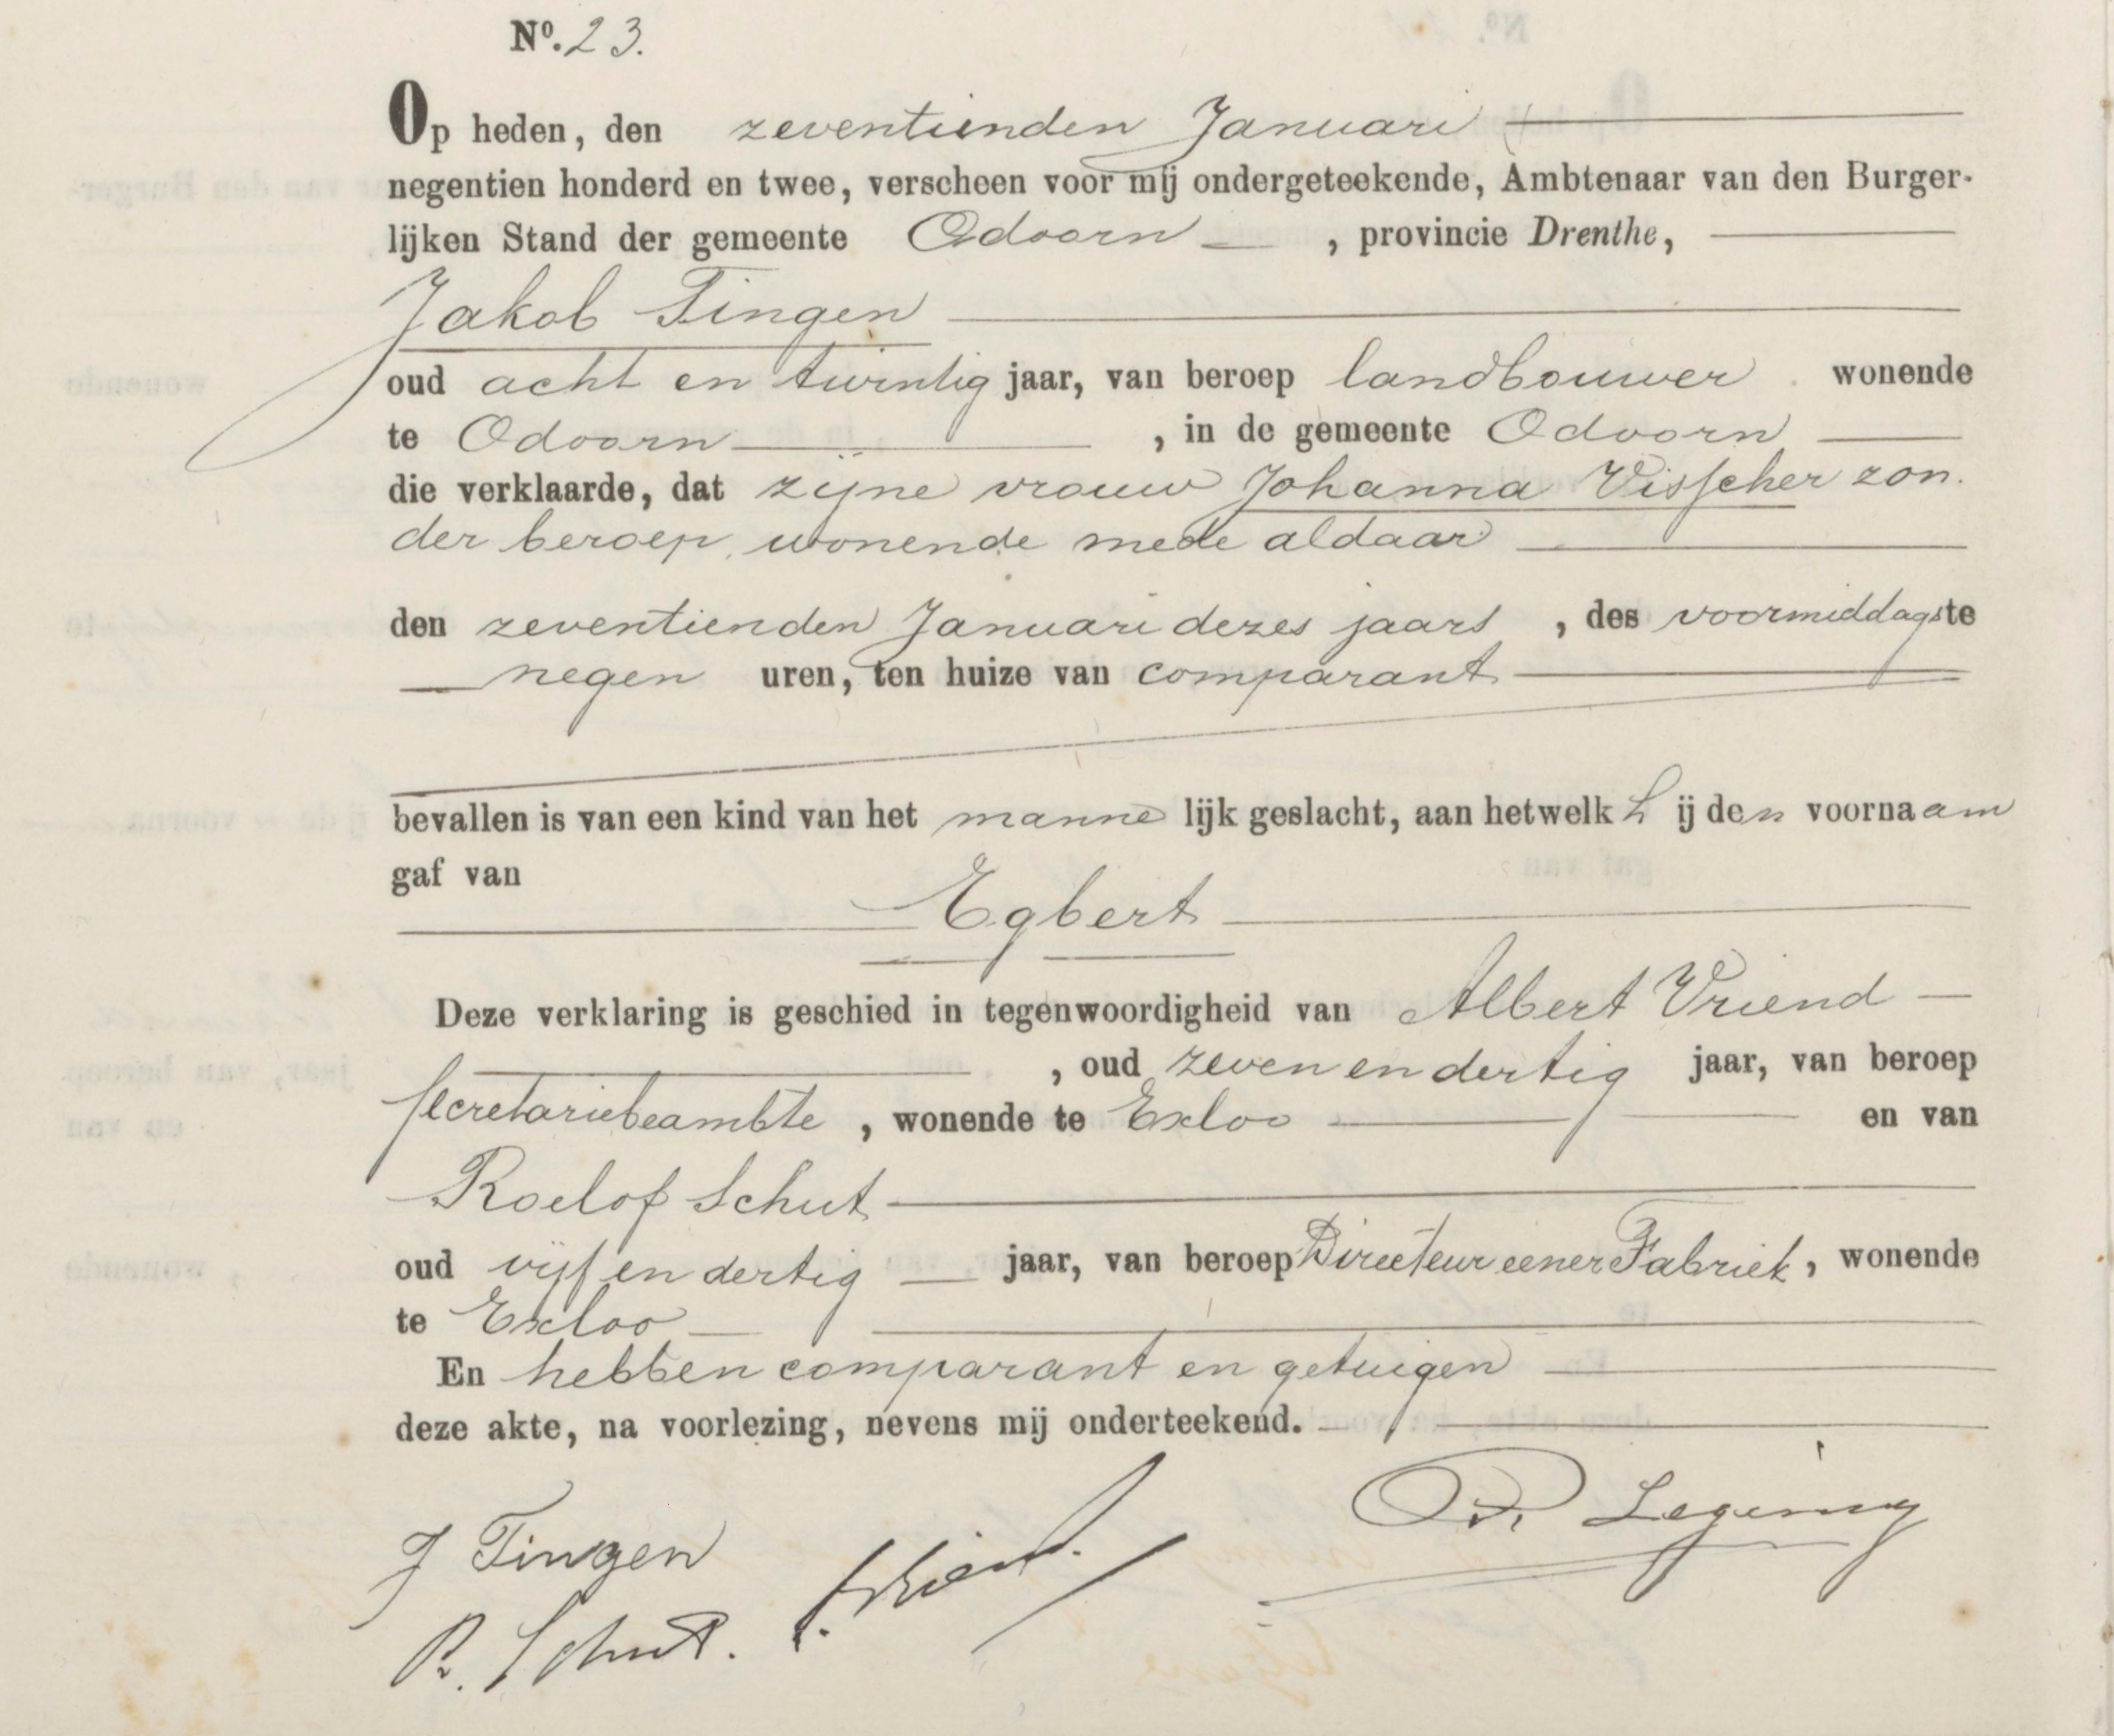 Nº. 23.
Op heden, den zeventienden Januari
negentien honderd en twee, verscheen voor mij ondergeteekende, Ambtenaar van den Burger-
lijken Stand der gemeente Odoorn, provincie Drenthe,
Jakob Tingen
oud acht en twintig jaar, van beroep landbouwer wonende
te Odoorn, in de gemeente Odoorn
die verklaarde, dat zijne vrouw Johanna Visscher zon.
der beroep, wonende mede aldaar
den zeventienden Januari dezes jaars, des voormiddags te
negen uren, ten huize van comparant
bevallen is van een kind van het mannelijk geslacht, aan hetwelk hij den voornaam
gaf van
Egbert
Deze verklaring is geschied in tegenwoordigheid van Albert Vriend
, oud zeven en dertig jaar, van beroep
secretariebeambte, wonende te Exloo en van
Roelof Schut
oud vijf en dertig jaar, van beroep Directeur eener Fabriek, wonende
te Exloo
En hebben comparant en getuigen
deze akte, na voorlezing, nevens mij onderteekend.
J Tingen
Legering
R. Schut. Vriend.